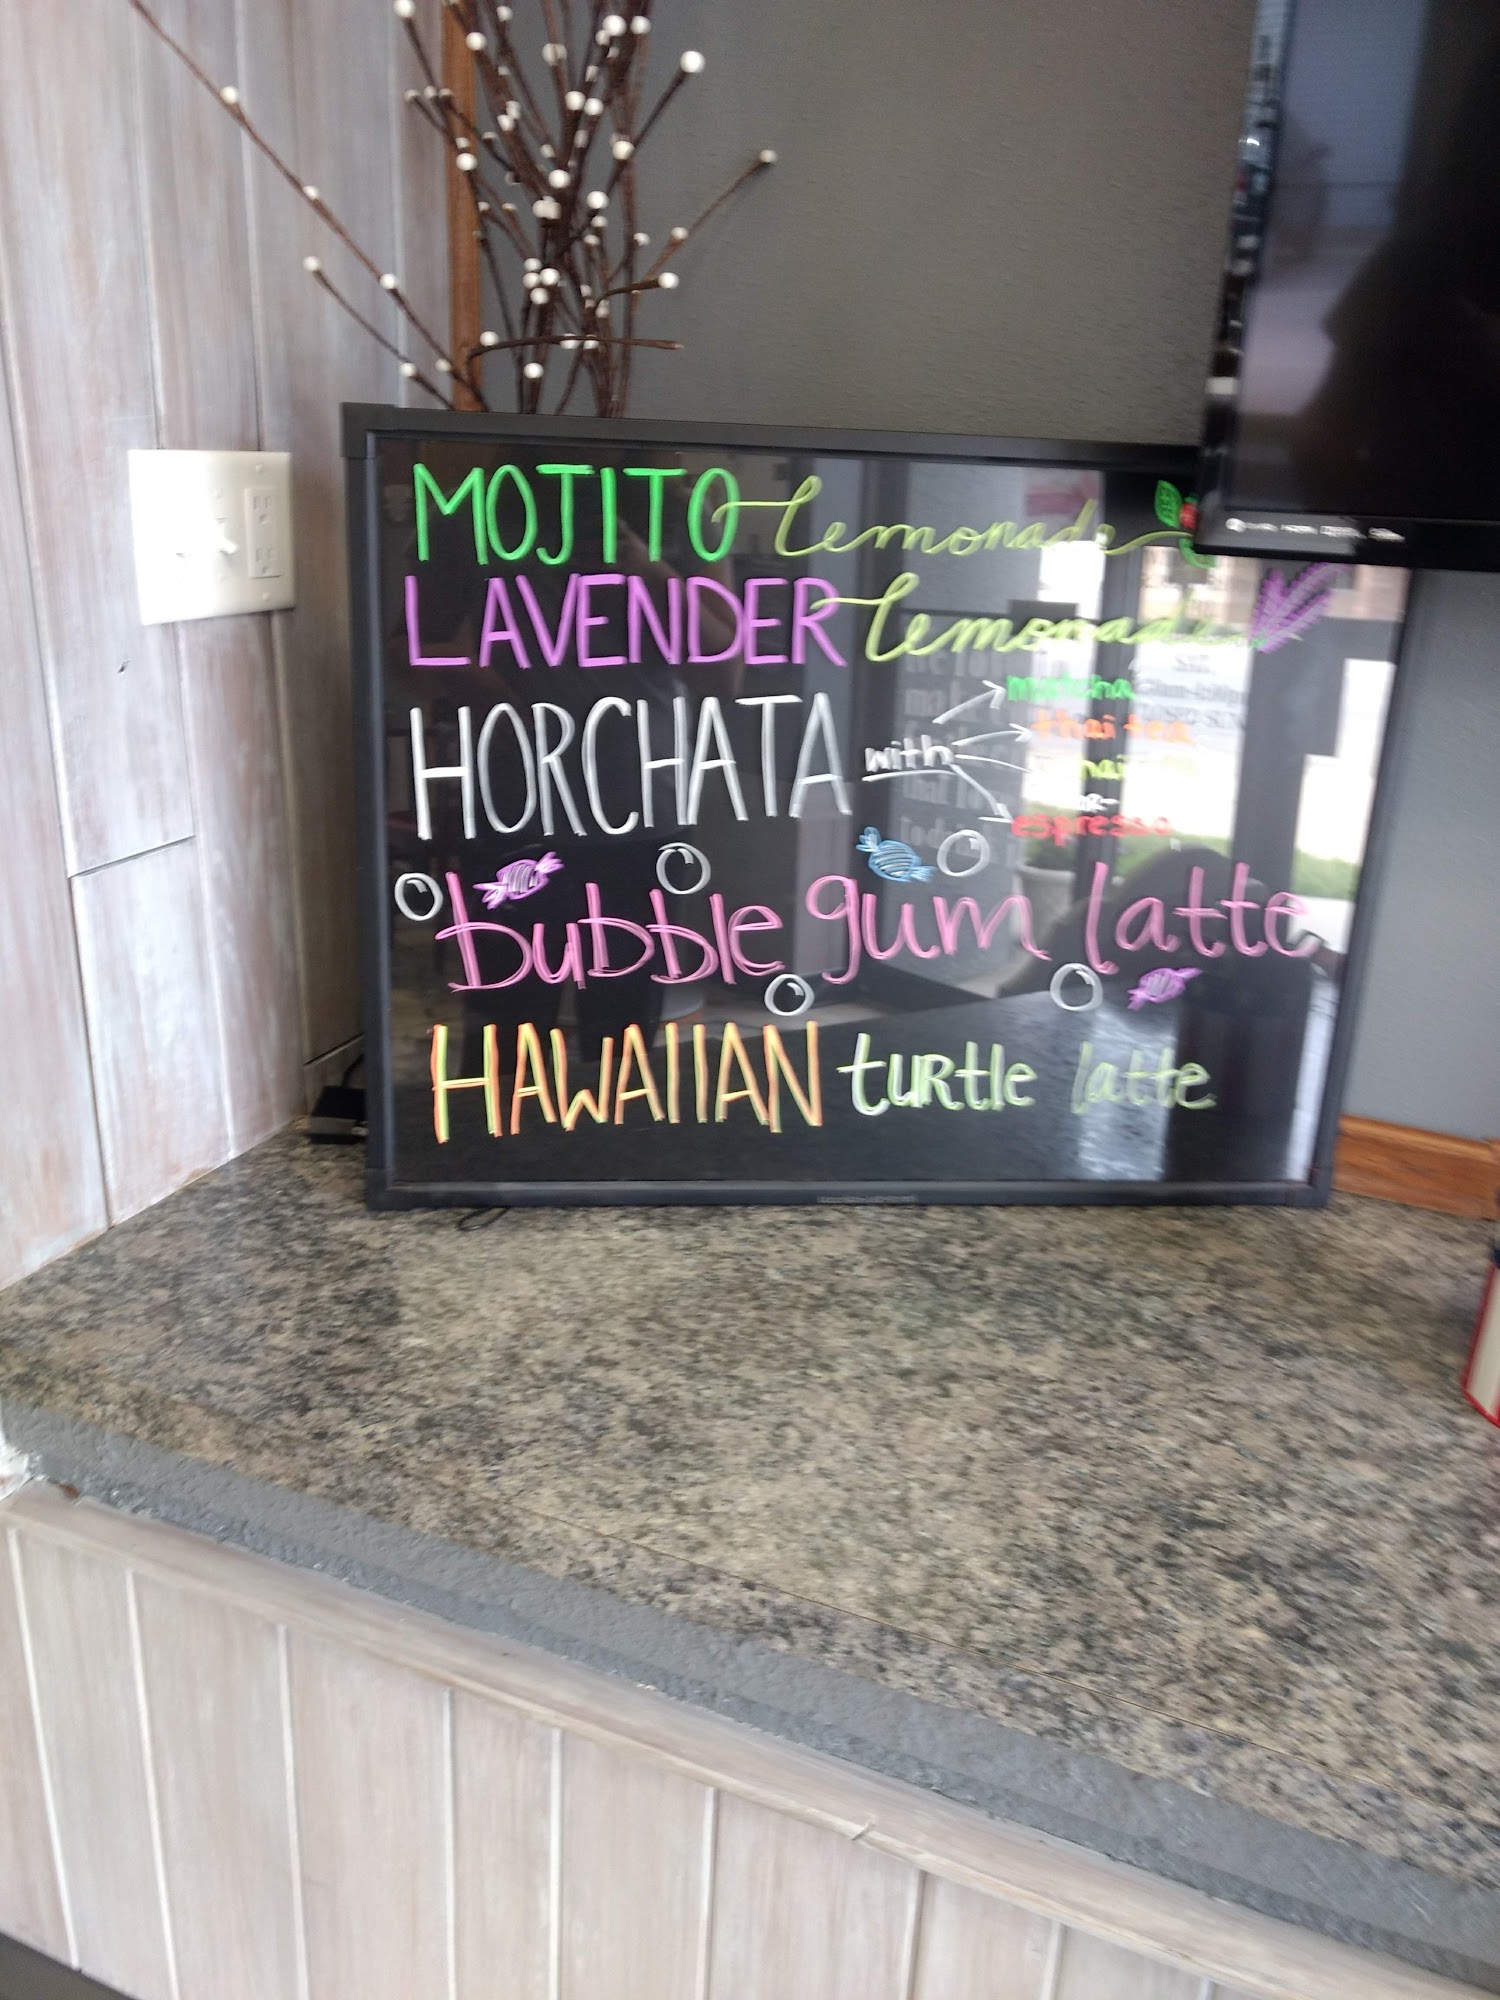 MOJITO lemonade
LAVENDER lemonade
HORCHATA with
matcha
thai tea
-or-
espresso
bubble gum latte
HAWAIIAN turtle latte